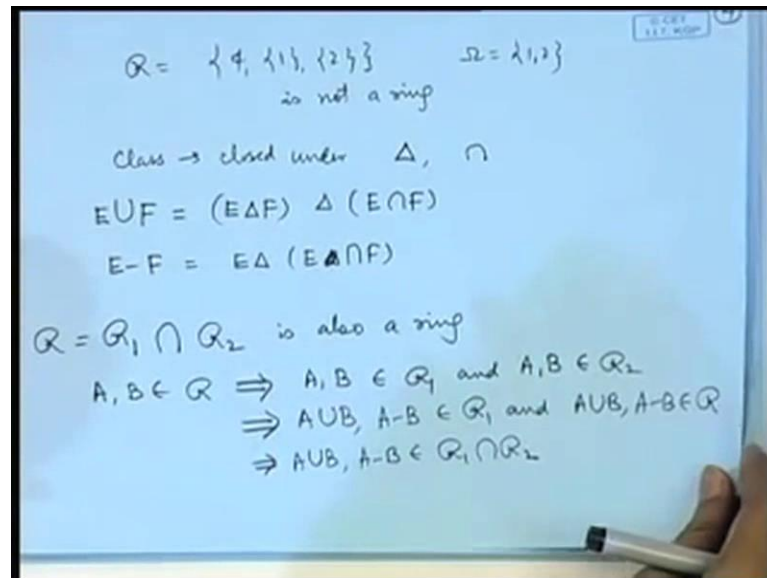 R = { φ, {1}, {2} } Ω = {1,2}
is not a ring
Class → closed under Δ, ∩
E∪F = (EΔF) Δ (E∩F)
E-F = EΔ (E∩F)
R = R₁ ∩ R₂ is also a ring
A, B ∈ R ⇒ A, B ∈ R₁ and A, B ∈ R₂
⇒ A∪B, A-B ∈ R₁ and A∪B, A-B ∈ R
⇒ A∪B, A-B ∈ R₁∩R₂